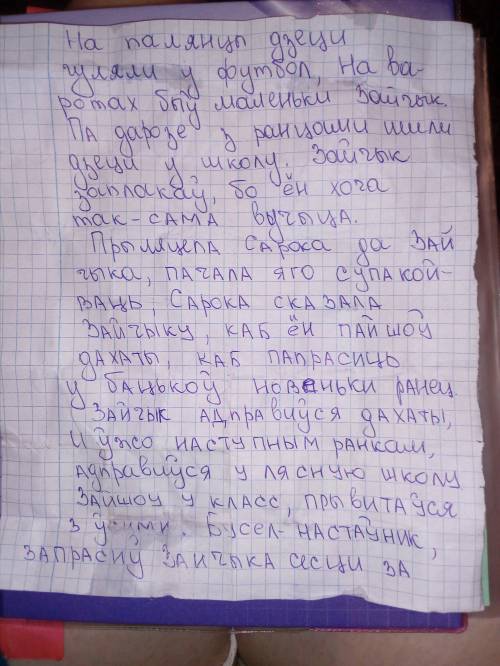 На палянцы дзеци
гуляли у футбол, на ва-
ротах быў маленьки зайчык.
Па дарозе з ранцами шили
дзеци у школу. Зайчык
заплакаў, бо ён хоча
так-сама вучыца.
Прыляцела Сарока да зай
чыка, пачала яго супакой-
ваць, Сарока сказала
зайчыку, каб ён пайшоў
дахаты, каб папрасиць
у бацькоў новеньки ранец.
Зайчык адправиўся дахаты,
и ўжо наступным ранкам,
адправиўся у лясную школу
Зайшоу у класс, прывитаўся
з Бусел-настаўник,
запрасиў зайчыка сесци за